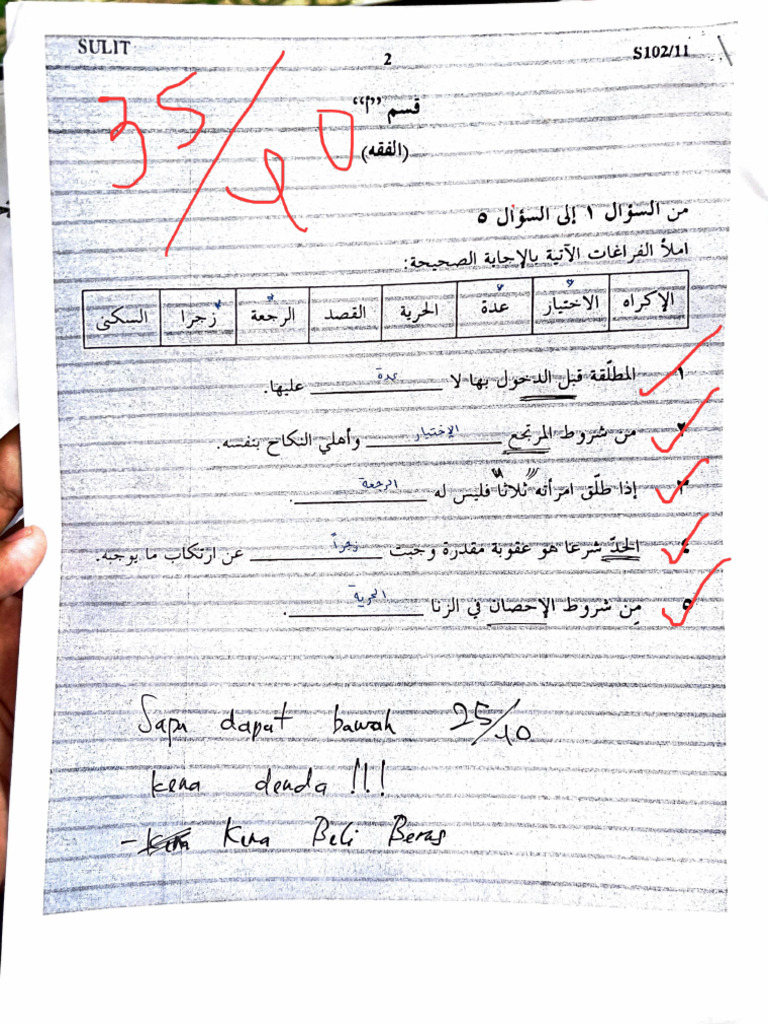 SULIT 2 S102/11
35/40
قسم "أ"
(الفقه)
من السؤال ١ إلى السؤال ٥
املأ الفراغات الآتية بالإجابة الصحيحة:
الإكراه الاختيار عدة الحرية القصد الرجعة زجرا السكنى
١ المطلّقة قبل الدخول بها لا عدة عليها.
٢ من شروط المرتجع الإختيار وأهلي النكاح بنفسه.
٣ إذا طلّق امرأته "ثلاثا" فليس له الرجعة.
٤ الحدّ شرعا هو عقوبة مقدرة وجبت زجراً عن ارتكاب ما يوجبه.
٥ مِن شروط الإحصان في الزنا الحرية.
Sapu dapat bawah 25/40
kena denda !!!
- Kena Beli Beras